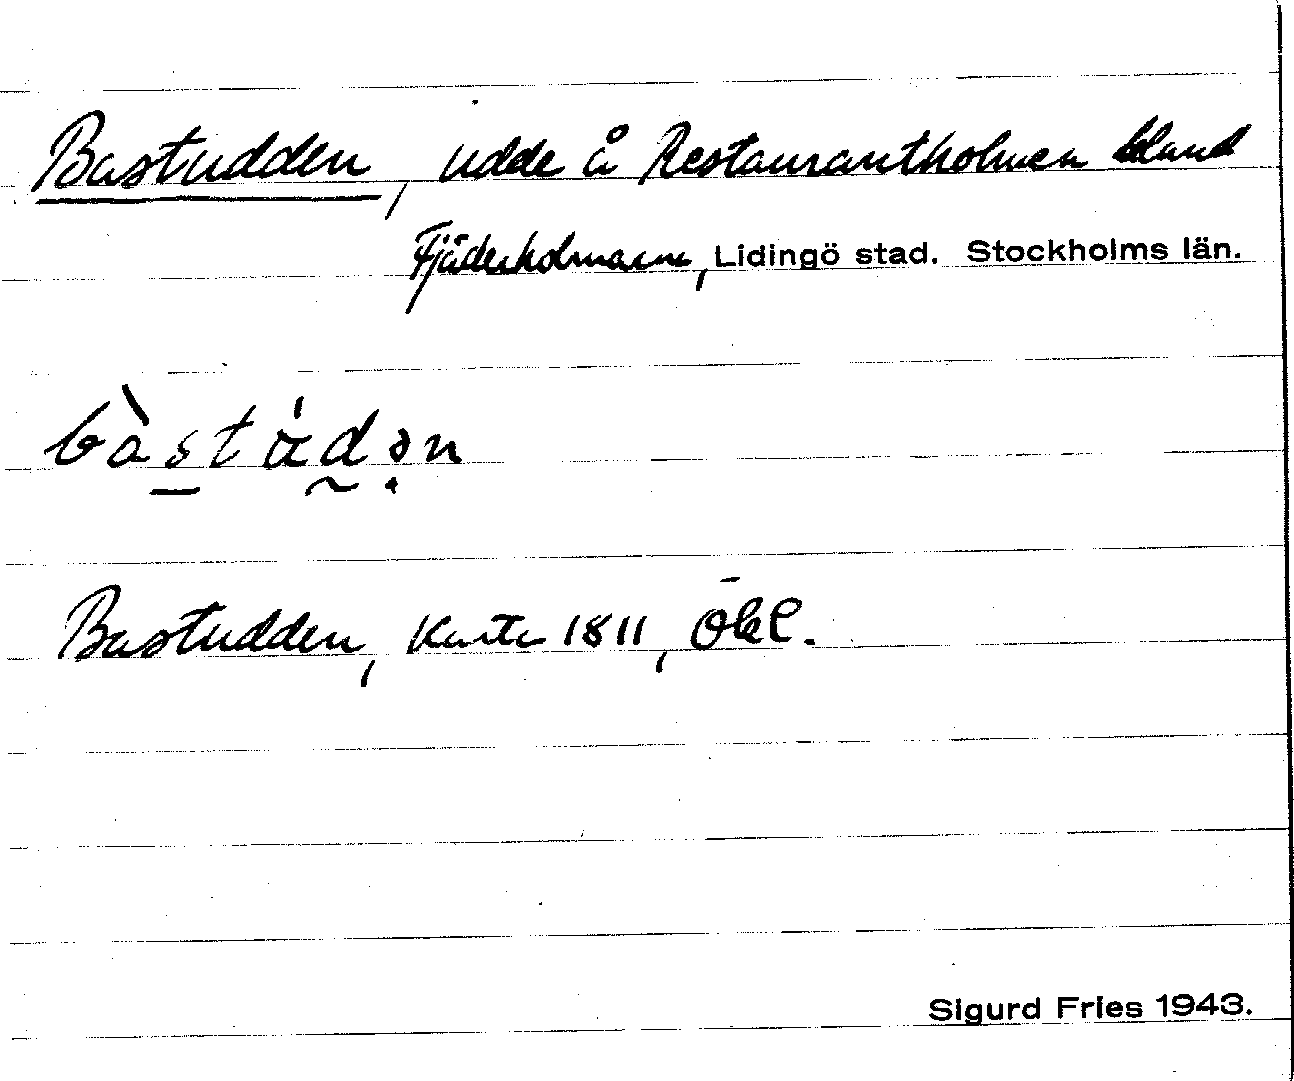 Bastudden, udde å Restaurantholmen bland
Fjäderholmarna, Lidingö stad. Stockholms län.
Bastudden, Karta 1811, ÖKL.
Sigurd Fries 1943.